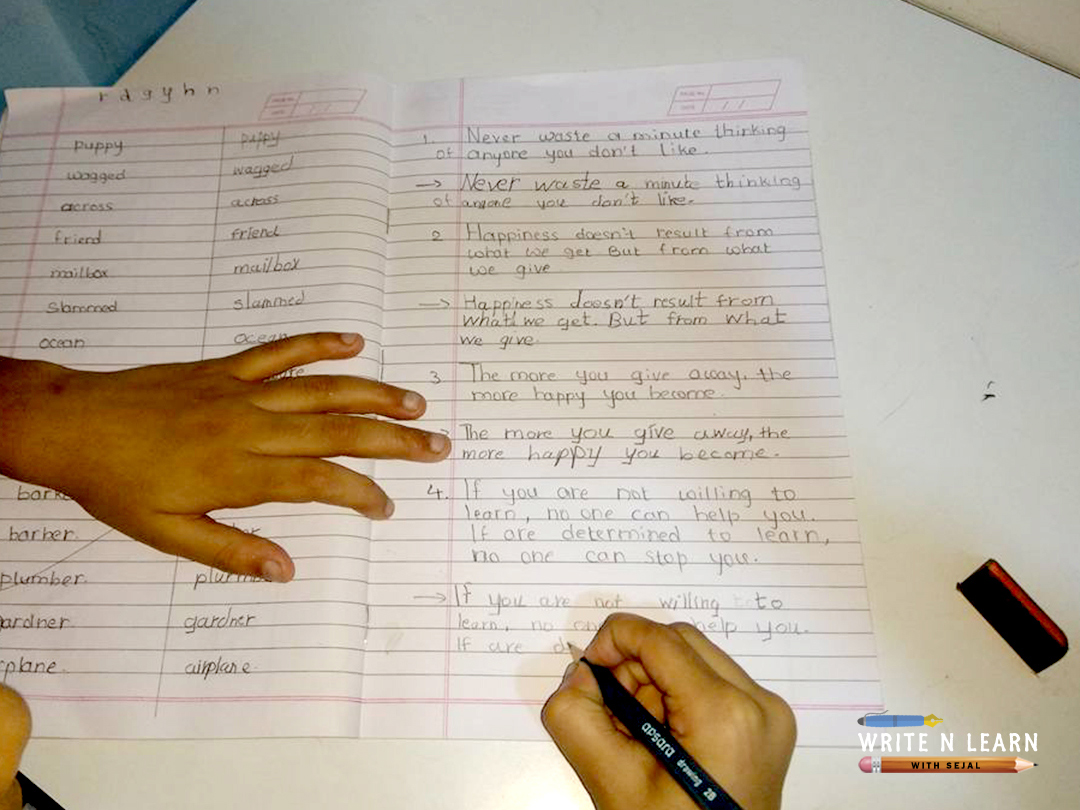 r d g y h n
puppy puppy
wagged wagged
across across
friend friend
mailbox mailbox
Slammed slammed
ocean ocean
barber
plumber
ardner gardner
plane airplane
1. Never waste a minute thinking
of anyone you don't like.
→ Never waste a minute thinking
of anyone you don't like.
2 Happiness doesn't result from
what we get But from what
we give
→ Happiness doesn't result from
what we get. But from what
we give.
3 The more you give away, the
more happy you become.
The more you give away, the
more happy you become.
4. If you are not willing to
learn, no one can help you.
If are determined to learn,
no one can stop you.
→ If you are not willing to
learn, no one help you.
If are d
apsara drawing 2B
WRITE N LEARN
WITH SEJAL